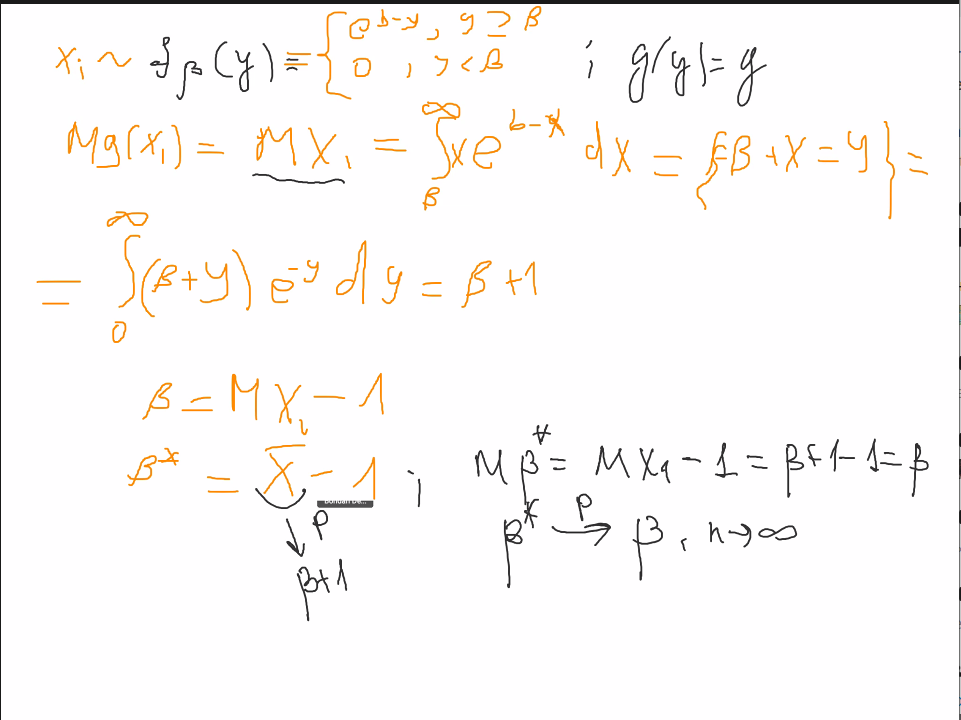 X₁ ~ f_β(y) = { e^{b-y}, y ≥ β ; 0, y < β ; g(y) = y
Mg(X₁) = MX₁ = ∫_β^∞ x e^{b-x} dx = {-β + x = y} =
= ∫_0^∞ (β+y) e^{-y} dy = β+1
β = MX₁ - 1
β* = X̄ - 1 ; Mβ* = MX₁ - 1 = β+1-1 = β
↓ P β* →^P β, n→∞
β+1